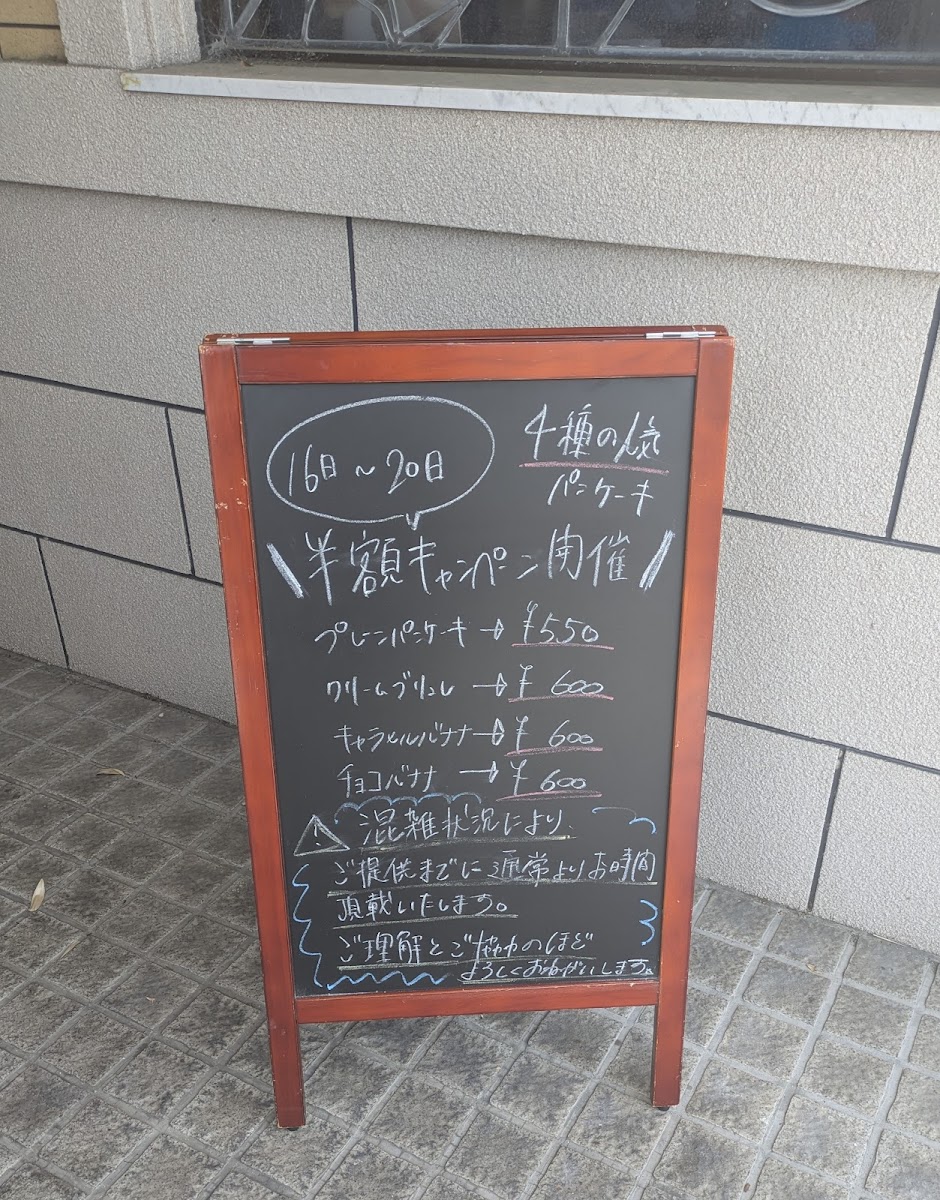 16日～20日
4種の人気
パンケーキ
\半額キャンペーン開催/
プレーンパンケーキ→¥550
クリームブリュレ→¥600
キャラメルバナナ→¥600
チョコバナナ→¥600
混雑状況により、
ご提供までに通常よりお時間
頂載いたします。
ご理解とご協力のほど
よろしくおねがいします。